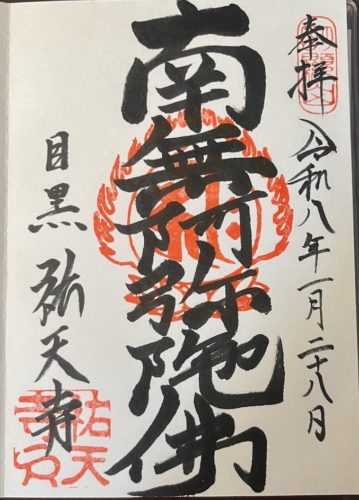 奉拝 令和八年一月二十八日
南無阿弥陀佛
目黒 祐天寺
祐天寺印